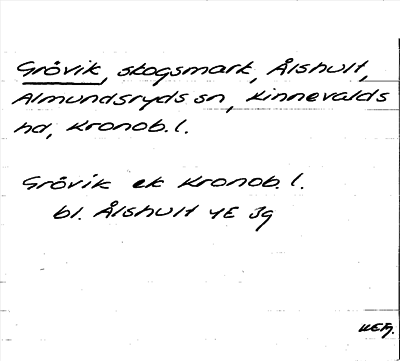 Gråvik, skogsmark, Ålshult,
Almundsryds sn, Kinnevalds
hd, Kronob. l.
Gråvik ek Kronob. l.
bl. Ålshult 4E 3g